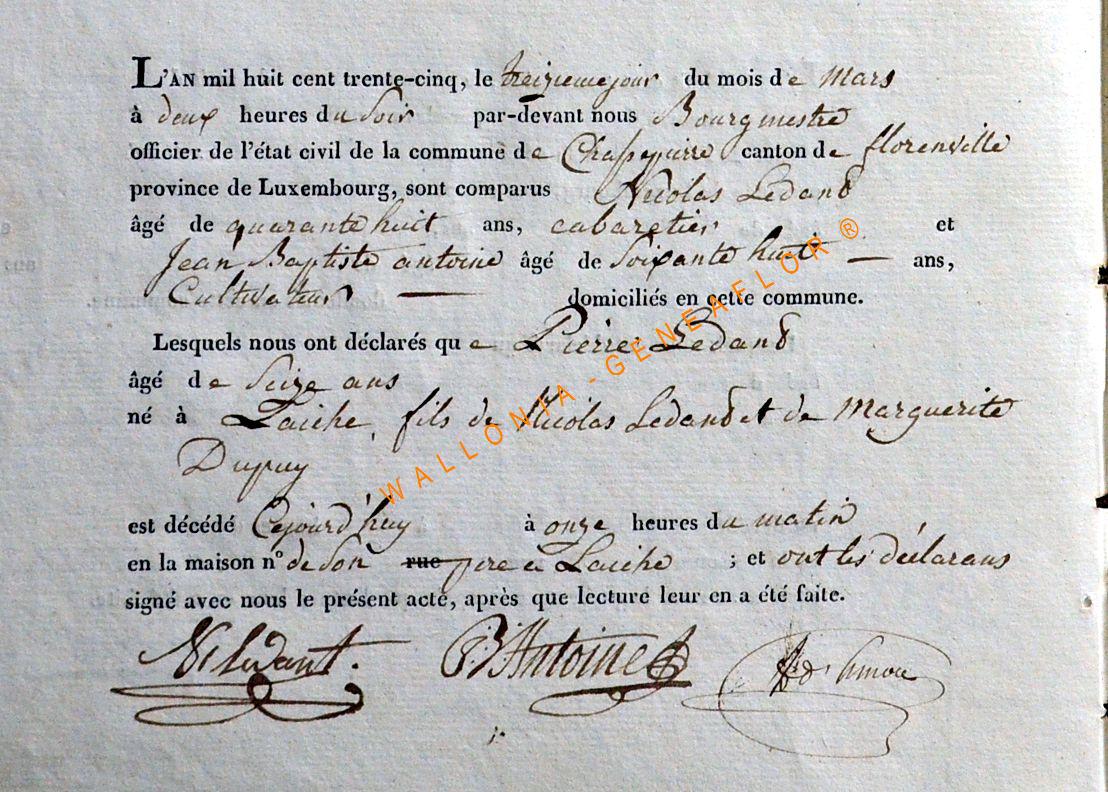 L'AN mil huit cent trente-cinq, le treizieme jour du mois de Mars
à deux heures du Soir par-devant nous Bourgmestre
officier de l'état civil de la commune de Chassepierre canton de florenville
province de Luxembourg, sont comparus Nicolas Ledand
âgé de quarante huit ans, cabaretier et
Jean Baptiste antoine âgé de Soixante huit — ans,
Cultivateur — domiciliés en cette commune.
Lesquels nous ont déclarés que Pierre Ledand
âgé de Seize ans
né à Laiche, fils de Nicolas Ledand et de Marguerite
Dupuy
est décédé Cejourd'huy à onze heures du matin
en la maison n° de Son rue pere a Laiche ; et ont les déclarans
signé avec nous le présent acte, après que lecture leur en a été faite.
Ledant. JB Antoine
WALLONIA-GENEAFLOR ®